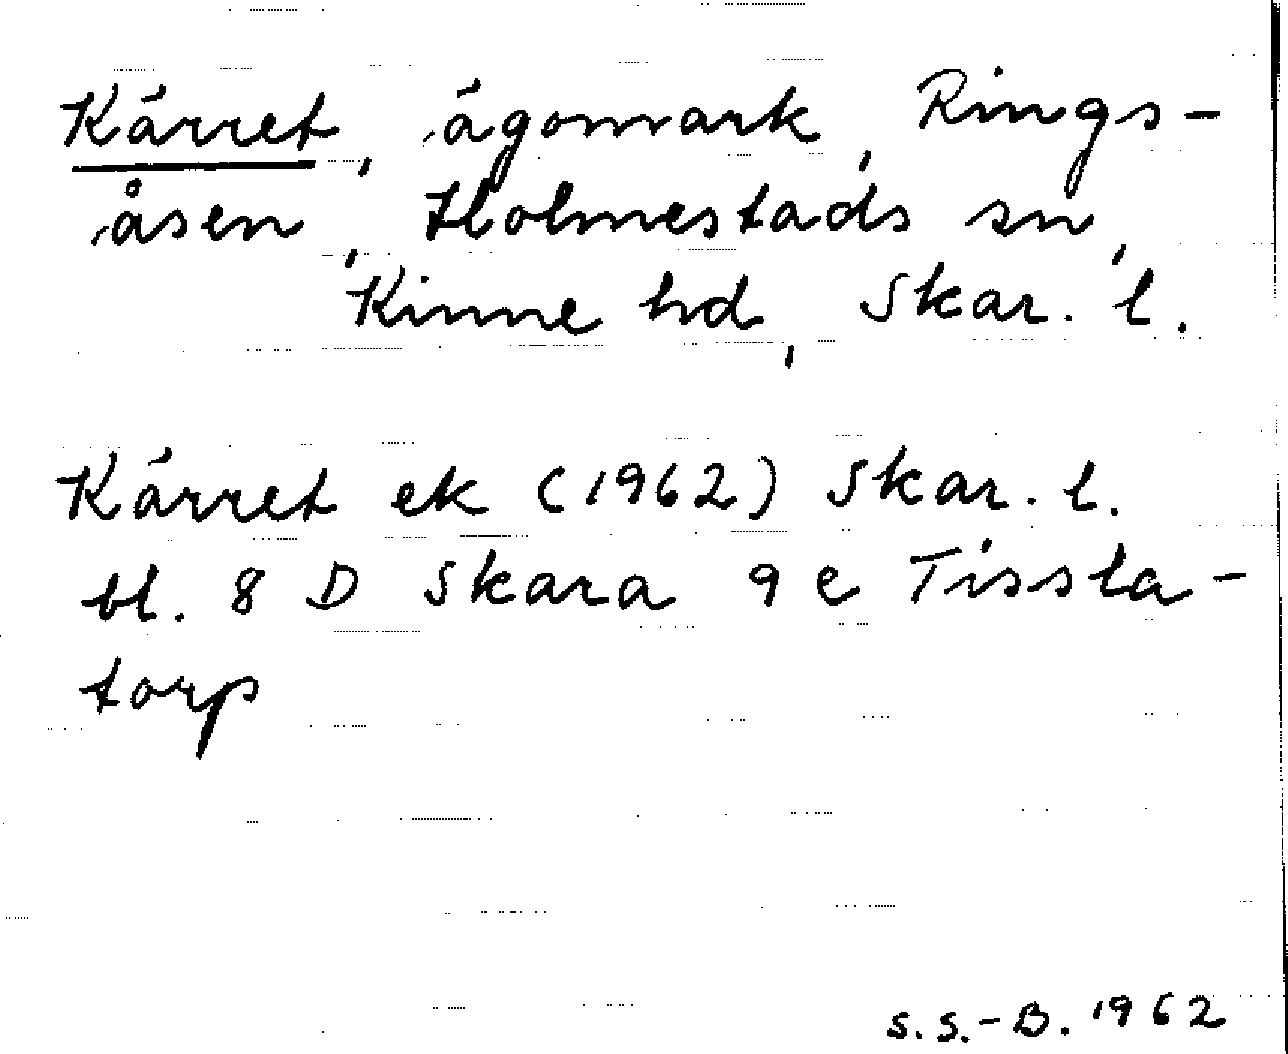 Kärret, ägomark, Rings-
åsen, Holmestads sn,
Kinne hd, Skar. l.
Kärret ek (1962) Skar. l.
bl. 8 D Skara 9 e Tissla-
torp
S.S.-B. 1962